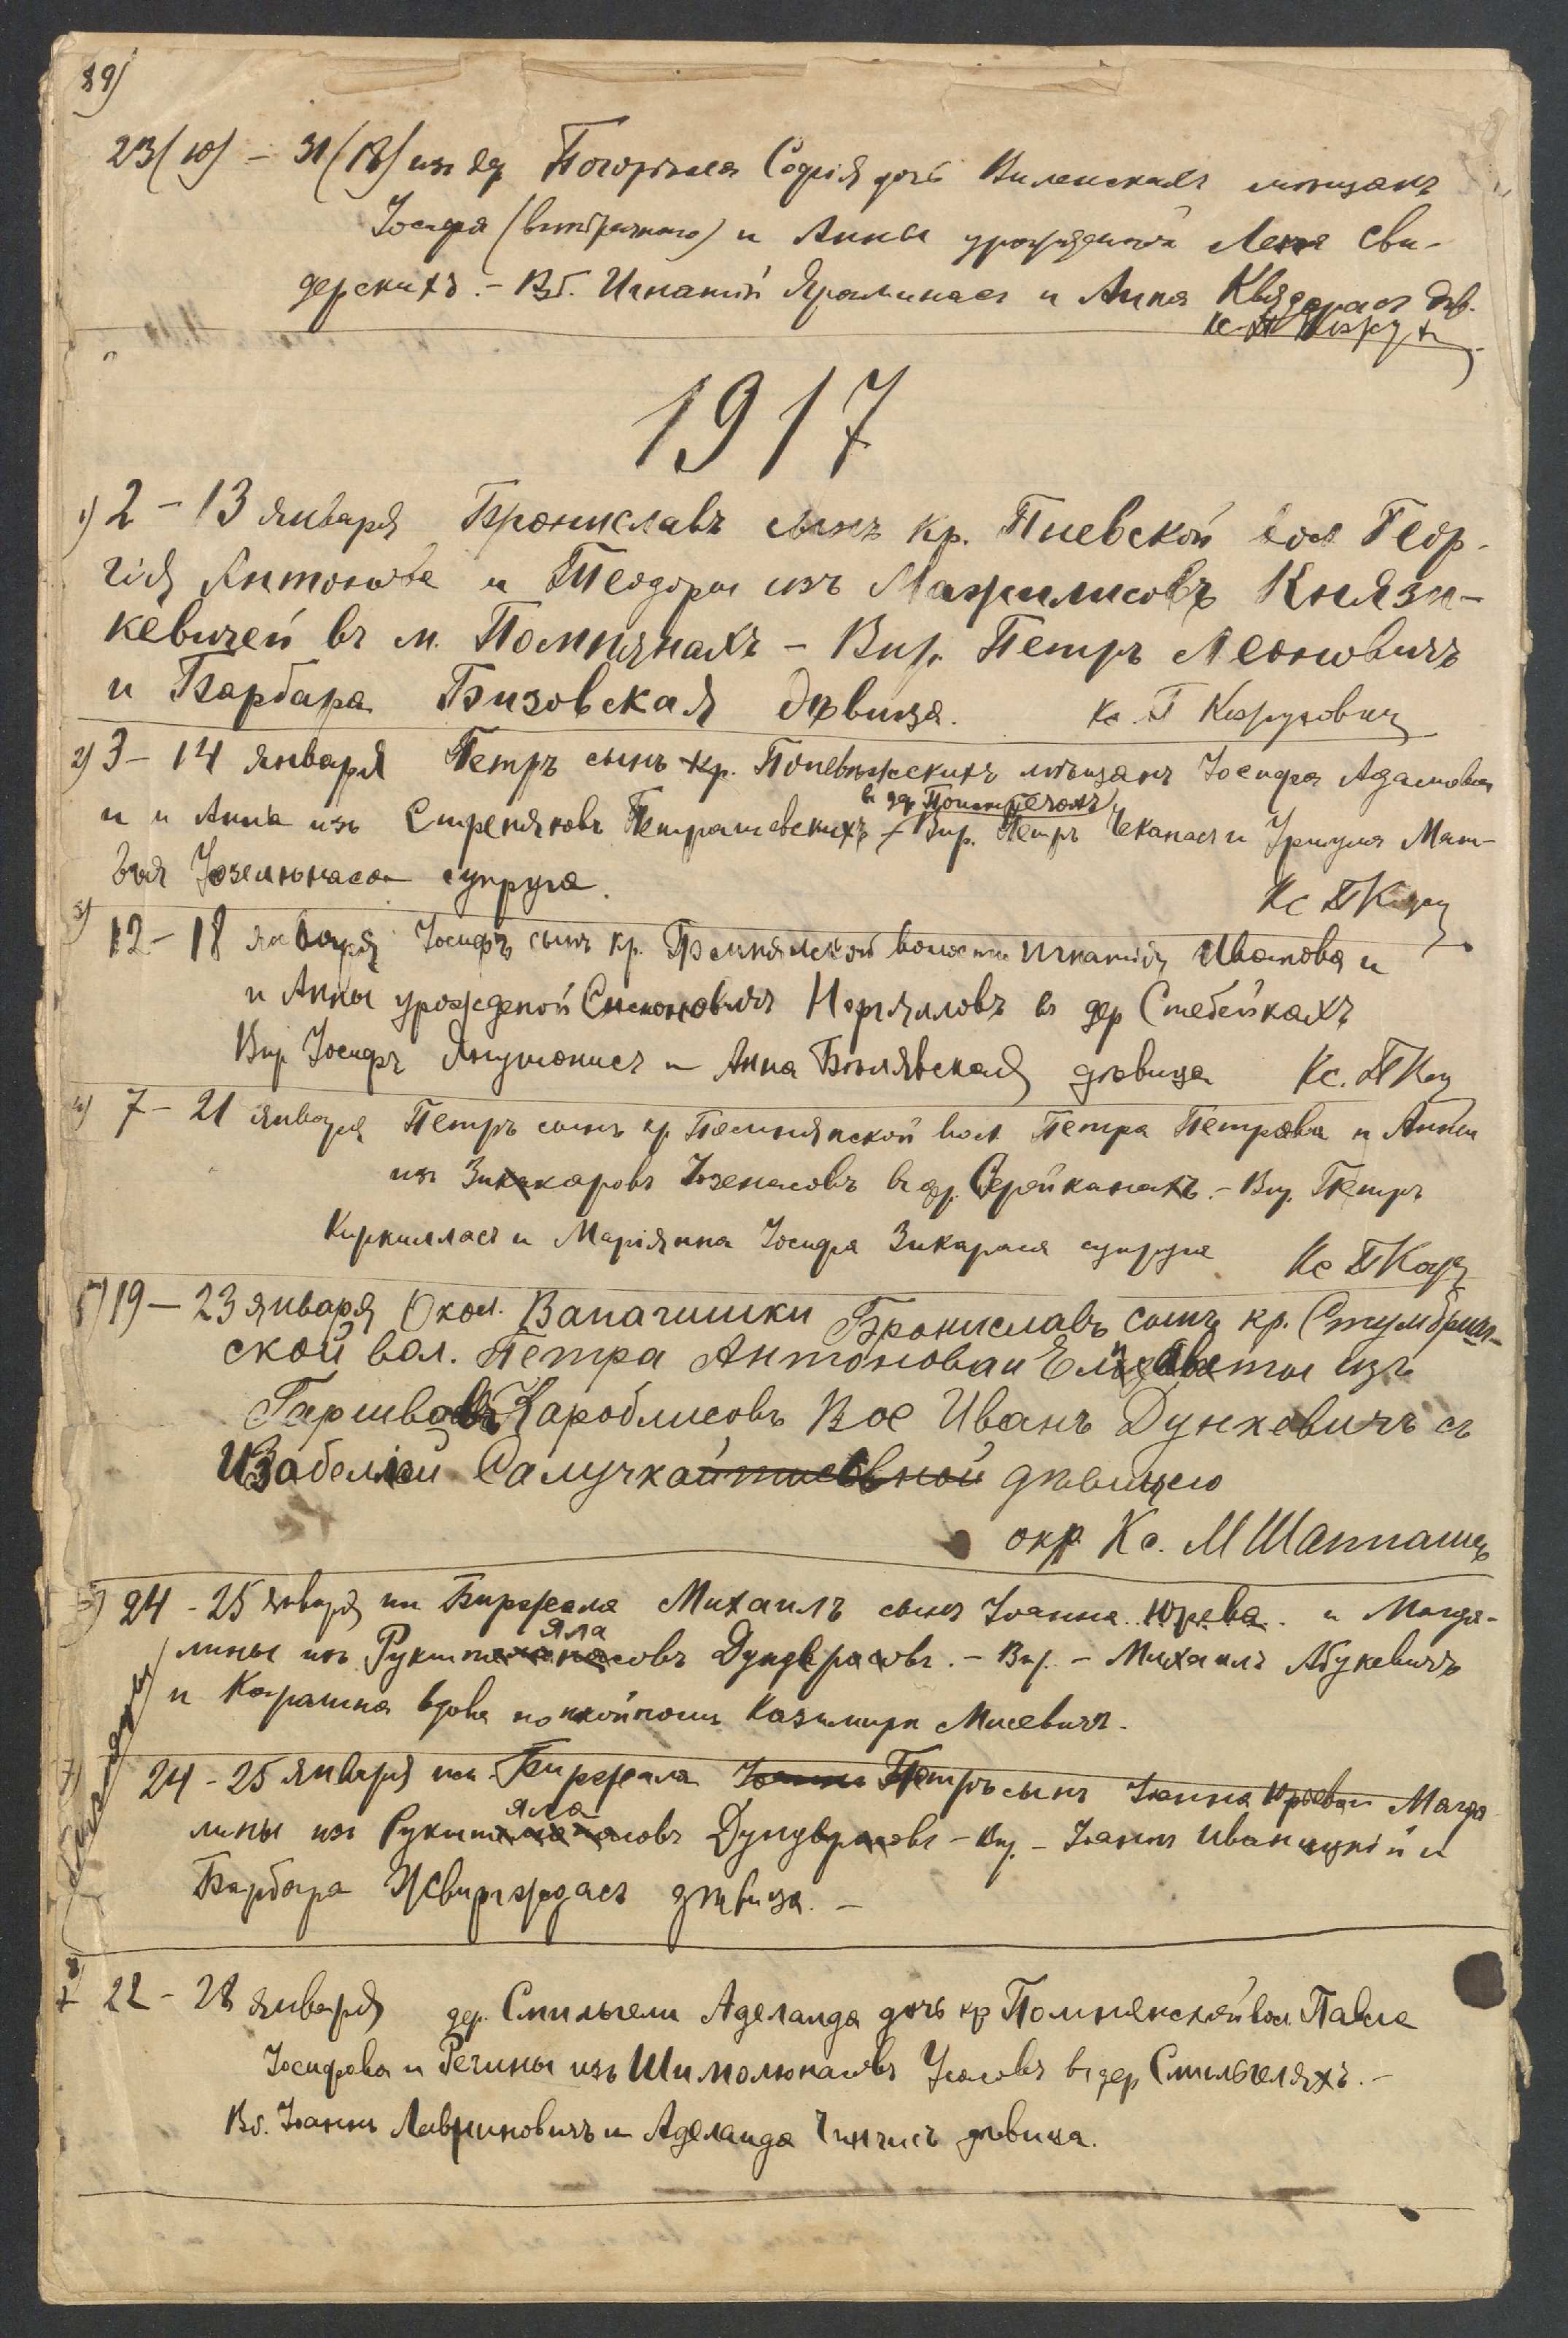 89)
23(10) – 31(18) изъ дер Погорѣлея Софія дочь Виленскихъ мѣщанъ
Іосифа (внебрачного) и Анны урожденной Сви-
дерскихъ. – Вб. Игнатій Яроминасъ и Анна дѣв.
1917
1) 2 – 13 января Брониславъ сынъ кр. Пиевской вол Геор-
гія Антонова и Теодоры изъ Мажилисовъ Князи-
кевичей въ м. Помпянахъ – Впр. Петръ Леоновичъ
и Барбара Бизовская дѣвица. Кс. П Кожуховичъ
2) 3 – 14 января Петръ сынъ кр. Поневѣжскихъ мѣщанъ Іосифа Адамова
въ дер
и и Анны изъ Стреняковъ Петрашевскихъ – Впр. Петръ Чеканасъ и Уршуля Мат-
вѣя Юзелюнаса супруга. Кс П
3) 12 – 18 января Іосифъ сынъ кр. Помпянской волости Игнатія Иванова и
и Анны урожденой Норяловъ въ дер Стебейкахъ
Впр Іосифъ Янушонисъ и Анна Бѣлявская дѣвица Кс. П
4) 7 – 21 января Петръ сынъ кр Помпянской вол Петра Петрова и Анны
изъ Зикакаровъ Юзенасовъ въ др. – Впр. Петръ
Киркилласъ и Маріянна Іосифа Зикараса супруга Кс П
5) 19 – 23 января Окол. Вапагишки Брониславъ сынъ кр. Стумбриш-
ской вол. Петра Антонова и Елизаветы изъ
Гаршвовъ Кароблисовъ Вос Иванъ Дункевичъ съ
Изабеллой Салучкой дѣвицею
окр Кс. М Шапташъ
6) 24 – 25 января им Биржеле Михаилъ сынъ Іоанна Юрева и Магда-
яла
лины изъ Рукшт совъ Дундврасовъ. – Впр. – Михаилъ Абукевичъ
и вдова покойного Казимира Мисевичъ.
7) 24 – 25 января им. Биржеля Іоаннъ Петръ сынъ Іоанна Юрева и Магда
яла
лины изъ Рукшт совъ Дундврасовъ – Впр. – Іоаннъ Иваницкій и
Барбара Жвиргждасъ дѣвица. –
8) 22 – 28 января дер. Смильгели Аделаида дочь кр Помпянской вол. Павла
Іосифова и Регины изъ Шимолюнасовъ Усасовъ въ дер Смильгеляхъ. –
Вб. Іоаннъ Лавриновичъ и Аделаида Чинчисъ дѣвица.